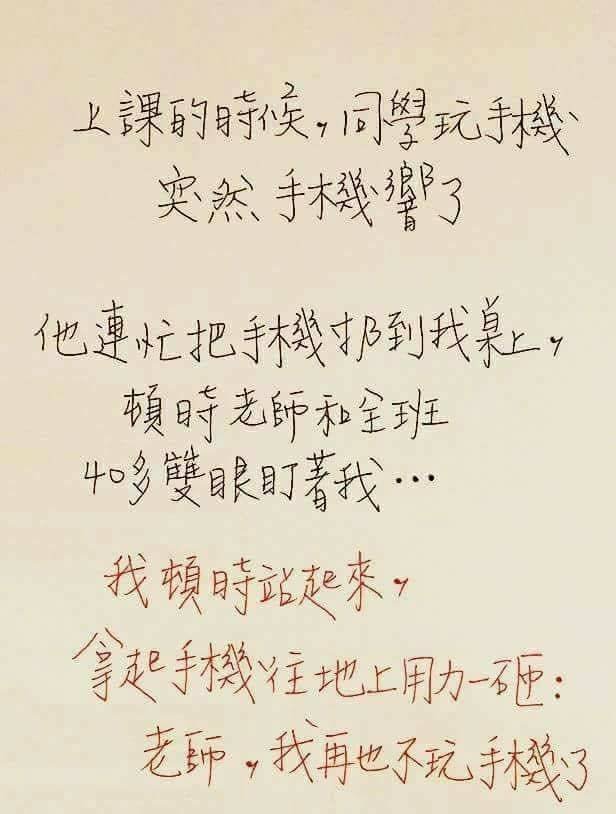 上課的時候，同學玩手機
突然手機響了
他連忙把手機扔到我桌上，
頓時老師和全班
40多雙眼盯著我…
我頓時站起來，
拿起手機往地上用力一砸：
老師，我再也不玩手機了